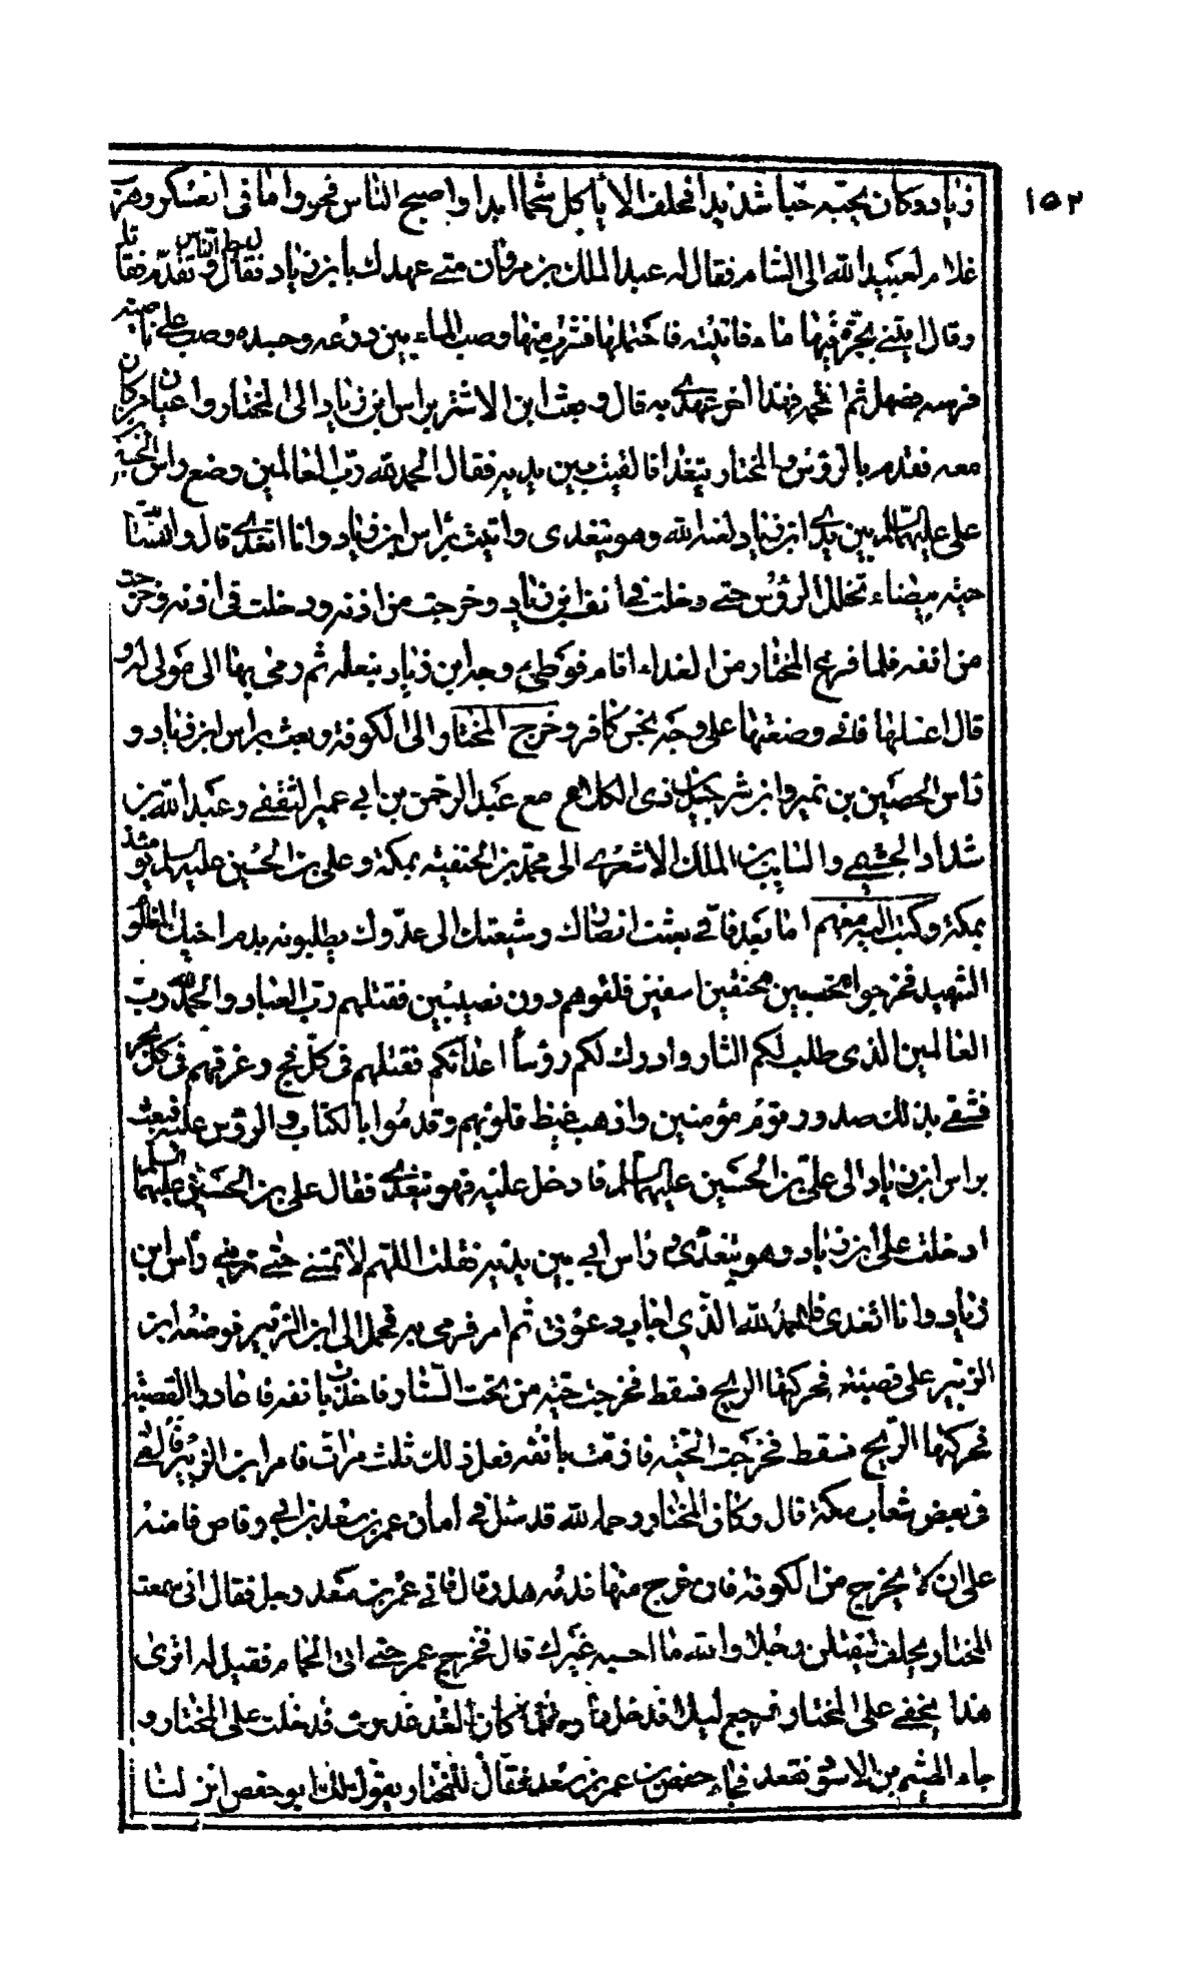 ١٥٢
زياد وكان يحبه حبا شديدا فحلف الا ياكل شحما ابدا واصبح الناس فحووا ما فى العسكر وهرب
غلام لعبيد الله الى الشام فقال له عبد الملك بن مروان متى عهدك بابن زياد فقال جال الناس وتقدم فقاتل
وقال ايتنى بجرة فيها ماء فاتيته فاحتملها فشرب منها وصب الماء بين درعه وجسده وصب على ناصية
فرسه فصهل ثم اقتحمه فهذا اخر عهدى به قال وبعث ابن الاشتر براس ابن زياد الى المختار واعيان من كان
معه فقدم بالرؤس والمختار يتغدا فالقيت بين يديه فقال الحمد لله رب العالمين وضع راس الحسين بن
على عليهما السلم بين يدى ابن زياد لعنه الله وهو يتغدى واتيت براس ابن زياد وانا اتغدى قال وانسابت
حية بيضاء تخلل الرؤس حتى دخلت فى انف ابن زياد وخرجت من اذنه ودخلت فى اذنه وخرجت
من انفه فلما فرغ المختار من الغداء قام فوطئ وجه ابن زياد بنعله ثم رمى بها الى مولى له و
قال اغسلها فانى وضعتها على وجه نجس كافر وخرج المختار الى الكوفة وبعث براس ابن زياد و
راس الحصين بن نمير وابن شرحبيل بن ذى الكلاع مع عبد الرحمن بن ابى عمير الثقفى وعبد الله بن
شداد الجشمى والسايب بن الملك الاشعرى الى محمد بن الحنفية بمكة وعلى بن الحسين عليه السلم يومئذ
بمكة وكتب اليه معهم اما بعد فانى بعثت انصارك وشيعتك الى عدوك يطلبونه بدم اخيك المظلوم
الشهيد فخرجوا محتسبين محنقين اسفين فلقوهم دون نصيبين فقتلهم رب العباد والحمد لله رب
العالمين الذى طلب لكم الثار وادرك لكم رؤساً اعدائكم فقتلهم فى كل فج وغرقهم فى كل بحر
فشفى بذلك صدور قوم مؤمنين واذهب غيظ قلوبهم وقدموا بالكتاب والرؤس عليه فبعث
براس ابن زياد الى على بن الحسين عليهما السلم فادخل عليه وهو يتغدى فقال على بن الحسين عليهما السلم
ادخلت على ابن زياد وهو يتغدى وراس ابى بين يديه فقلت اللهم لا تمتنى حتى ترينى راس ابن
زياد وانا اتغدى فالحمد لله الذى اجاب دعوتى ثم امر فرمى به فحمل الى ابن الزبير فوضعه ابن
الزبير على قصبة فحركتها الريح فسقط فخرجت حية من تحت الستار فاخذت بانفه فاعادوا القصبة
فحركتها الريح فسقط فخرجت الحية فازمت بانفه فعل ذلك ثلث مرات فامر ابن الزبير فالقى
فى بعض شعاب مكة قال وكان المختار رحمه الله قد سئل فى امان عمر بن سعد بن ابى وقاص فامنه
على ان لا يخرج من الكوفة فان خرج منها فدمه هدر قال فاتى عمر بن سعد رجل فقال انى سمعت
المختار يحلف ليقتلن رجلا والله ما احسبه غيرك قال فخرج عمر حتى اتى الحمام فقيل له اترى
هذا يخفى على المختار فرجع ليلا فدخل داره فلما كان الغد غدوت فدخلت على المختار و
جاء الهيثم بن الاسود فقعد فجاء حفص بن عمر بن سعد فقال للمختار يقول لك ابو حفص انزلنا